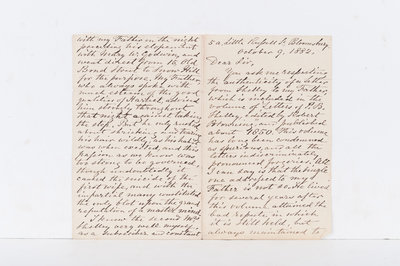 with my Father in the night
preceding his elopement
with Mary W. Godwin, and
went direct from 15 Old
Bond Street to Snow Hill
for the purpose. My Father,
who always spoke with
much esteem of the good
qualities of Harriet, advised
him strongly through
that night against taking
the step
about
was when excited, and this
passion as we know was
too strong to be governed,
though incidentally it
caused the suicide of his
first wife, and with the
impartial many constituted
the only blot upon the grand
reputation of a master mind.
I knew the second Mrs
Shelley very well myself
as a subscriber and constant
5a Little Russell St. Bloomsbury
October 9, 1882.
Dear Sir,
You ask me respecting
the authenticity of a letter
from Shelley to my Father,
which is included in the
volume of Letters of P.B.
Shelley, edited by Robert
Browning and published
about 1850. This volume
has long been condemned
as spurious, and all the
letters indiscriminately
pronounced forgeries. All
I can say is that the single
one addressed to my
Father is not so. He lived
for several years after
this volume attained the
bad repute, in which
it is still held, but
always maintained to